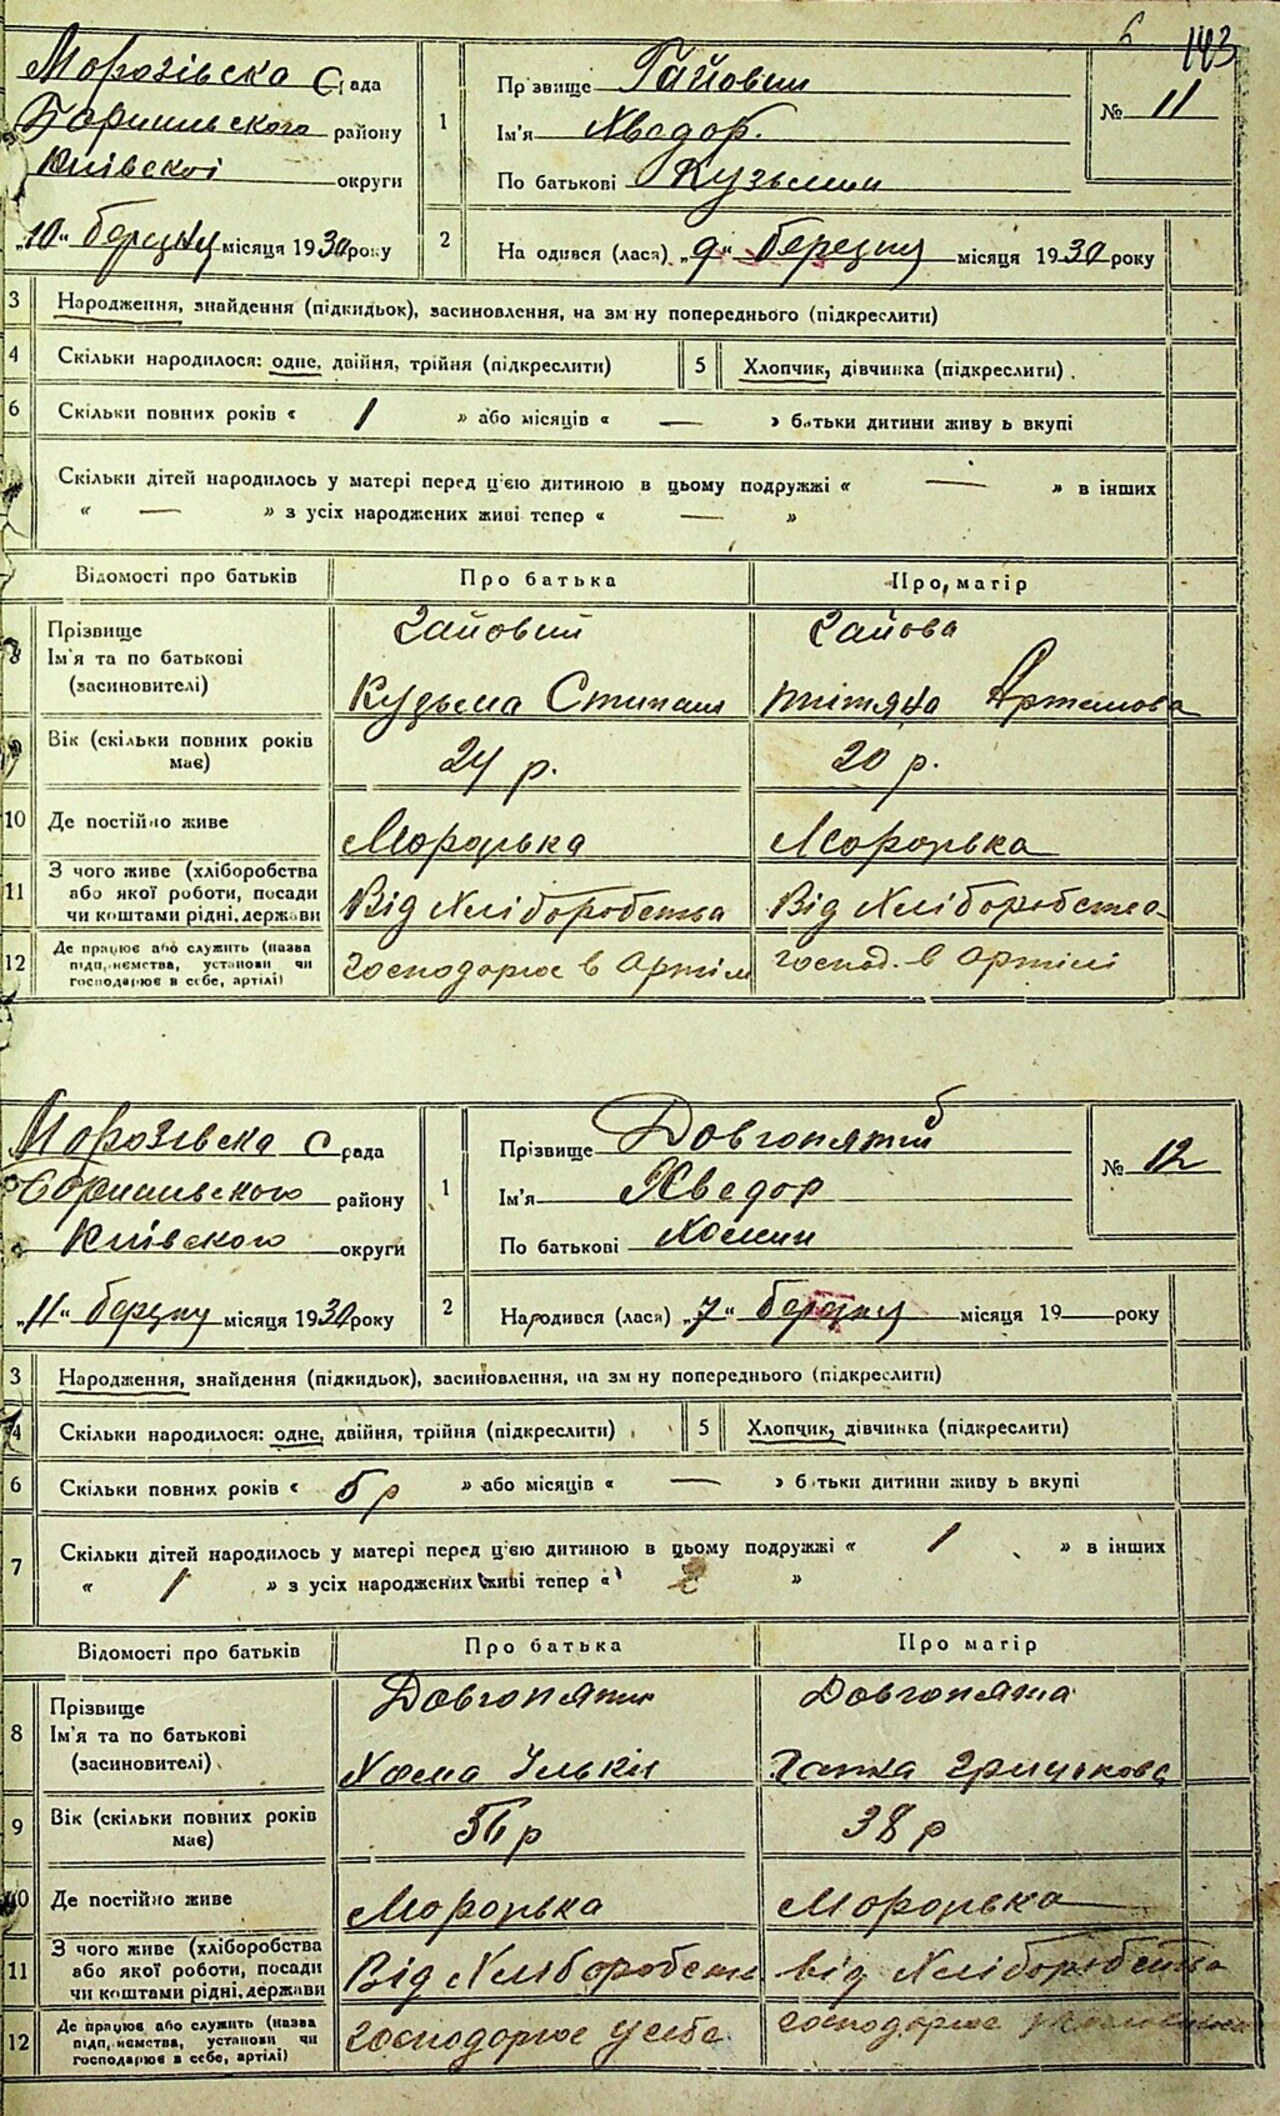 6 143
Морозівска С рада
Бориспільского району
Київскої округи
„10“ березня місяця 1930 року
1
Прізвище Гайовий
Ім'я Хведор.
По батькові Кузьмин
№ 11
2
На одився (лася) „9“ березня місяця 1930 року
3 Народження, знайдення (підкидьок), засиновлення, на зм ну попереднього (підкреслити)
4 Скільки народилося: одне, двійня, трійня (підкреслити) 5 Хлопчик, дівчинка (підкреслити).
6 Скільки повних років « 1 » або місяців « — » батьки дитини живу ь вкупі
Скільки дітей народилось у матері перед ц'єю дитиною в цьому подружжі « — » в інших
« — » з усіх народжених живі тепер « — »
Відомості про батьків Про батька Про матір
8 Прізвище Гайовий Гайова
Ім'я та по батькові
(засиновителі) Кузьма Стипан Титяна Артемова
9 Вік (скільки повних років
має) 24 р. 20 р.
10 Де постійно живе Морозівка Морозівка
11 З чого живе (хліборобства
або якої роботи, посади
чи коштами рідні, держави Від Хліборобства Від Хліборобства
12 Де працює або служить (назва
підприємства, установи чи
господарює в себе, артілі) господорює в Артіли господ. в Артілі
Морозівска С рада
Бориспільского району
Київского округи
„11“ березня місяця 1930 року
1
Прізвище Довгопятий
Ім'я Хведор
По батькові Хомин
№ 12
2
Народився (лася) „7“ березня місяця 19— року
3 Народження, знайдення (підкидьок), засиновлення, на зм ну попереднього (підкреслити)
4 Скільки народилося: одне, двійня, трійня (підкреслити) 5 Хлопчик, дівчинка (підкреслити)
6 Скільки повних років « 5 р » або місяців « — » б тьки дитини живу ь вкупі
7 Скільки дітей народилось у матері перед ц'єю дитиною в цьому подружжі « 1 » в інших
« 1 » з усіх народжених живі тепер « 2 »
Відомості про батьків Про батька Про матір
8 Прізвище Довгопятий Довгопята
Ім'я та по батькові
(засиновителі) Хома Ількин Ганка Грицькова
9 Вік (скільки повних років
має) р 38 р
10 Де постійно живе Морозівка Морозівка
11 З чого живе (хліборобства
або якої роботи, посади
чи коштами рідні, держави Від Хліборобства від Хліборобства
12 Де працює або служить (назва
підприємства, установи чи
господарює в себе, артілі) господорює у себе господорює